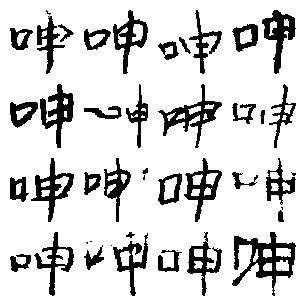 呻呻呻呻
呻呻呻呻
呻呻呻呻
呻呻呻呻